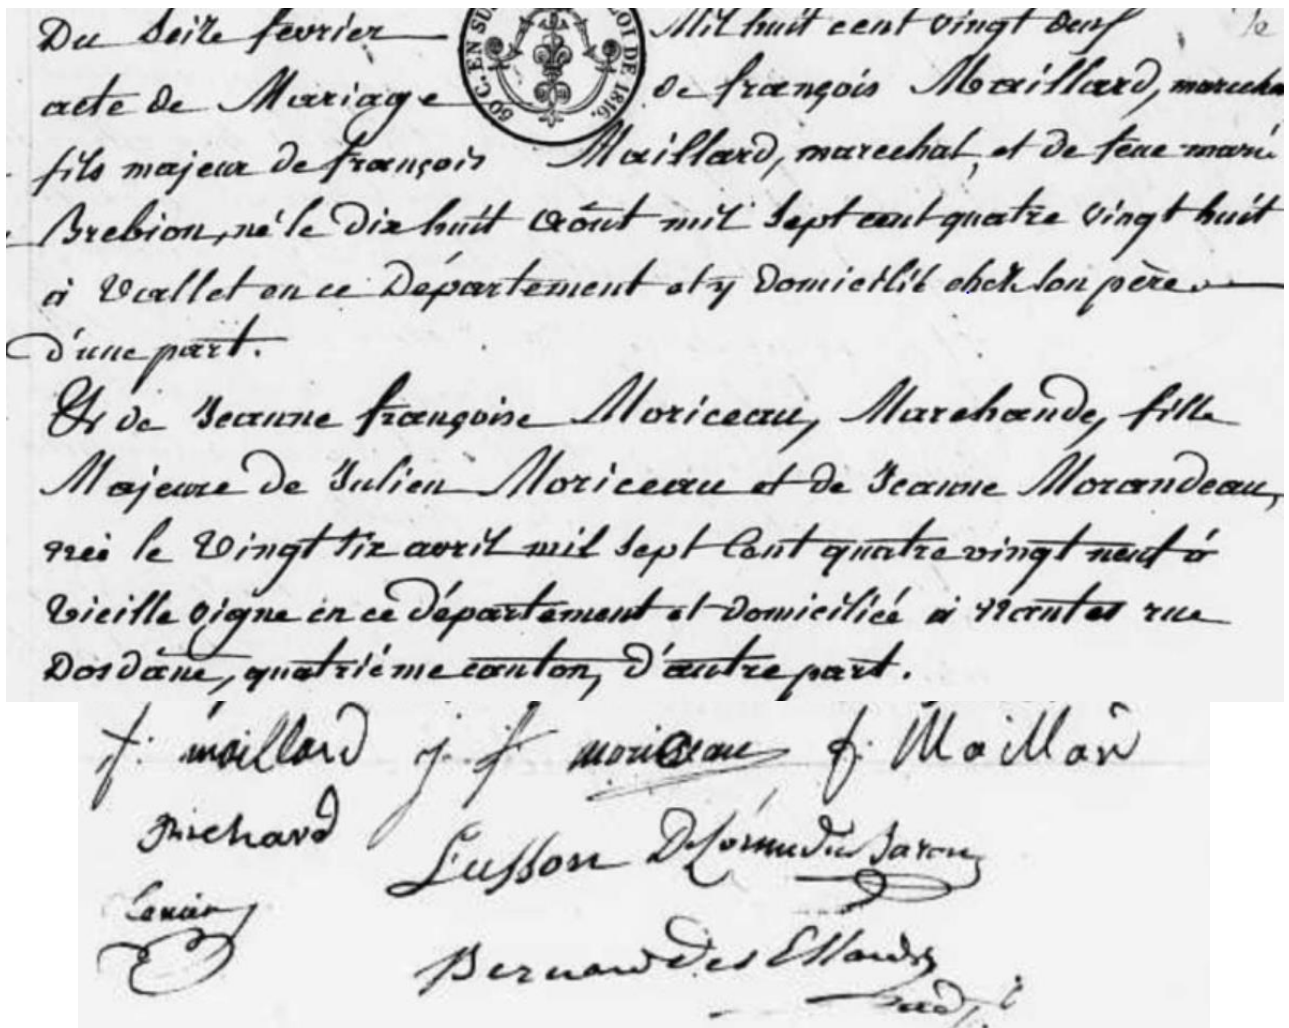 Du Seize fevrier Mil huit cent vingt deux
acte de Mariage de françois Maillard, marechal
fils majeur de françois Maillard, marechal, et de feue marie
Brebion, né le dix huit août mil sept cent quatre vingt huit
à Vallet en ce Département et y domicilié chez son père
d'une part.
Et de Jeanne françoise Moriceau, Marchande, fille
Majeure de Julien Moriceau et de Jeanne Morandeau,
née le Vingt six avril mil sept Cent quatre vingt neuf à
Vieille vigne en ce département et domiciliée à Nantes rue
Dosdâne, quatrième canton, d'autre part.
f. maillard j. f. moriceau f. Maillard
Richard
Lusson
Bernard des Essards
60 C. EN SUS LOI DE 1816.